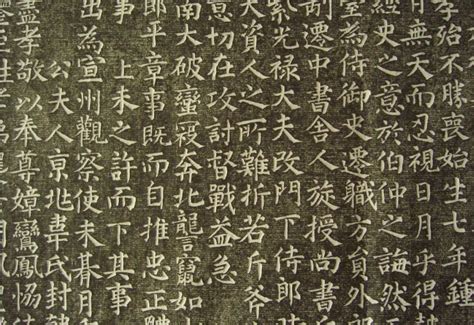 殆不勝喪始生七年鍾
月無天而忍視日月乎得
經史之意於伯仲之誨然
室為侍御史遷職方員外
制遷中書舍人旋授尚書
紫光禄大夫改門下侍郎
大資人之所難折若斤斧
意切在攻討督戰益急
南大破蠻寇奔北讋竄如
郎平章事既而自推忠正體
上未之許而下其事
出為宣州觀察使未朞月
公夫人京兆韋氏封
盡孝敬以奉尊嫜鸞鳳恊